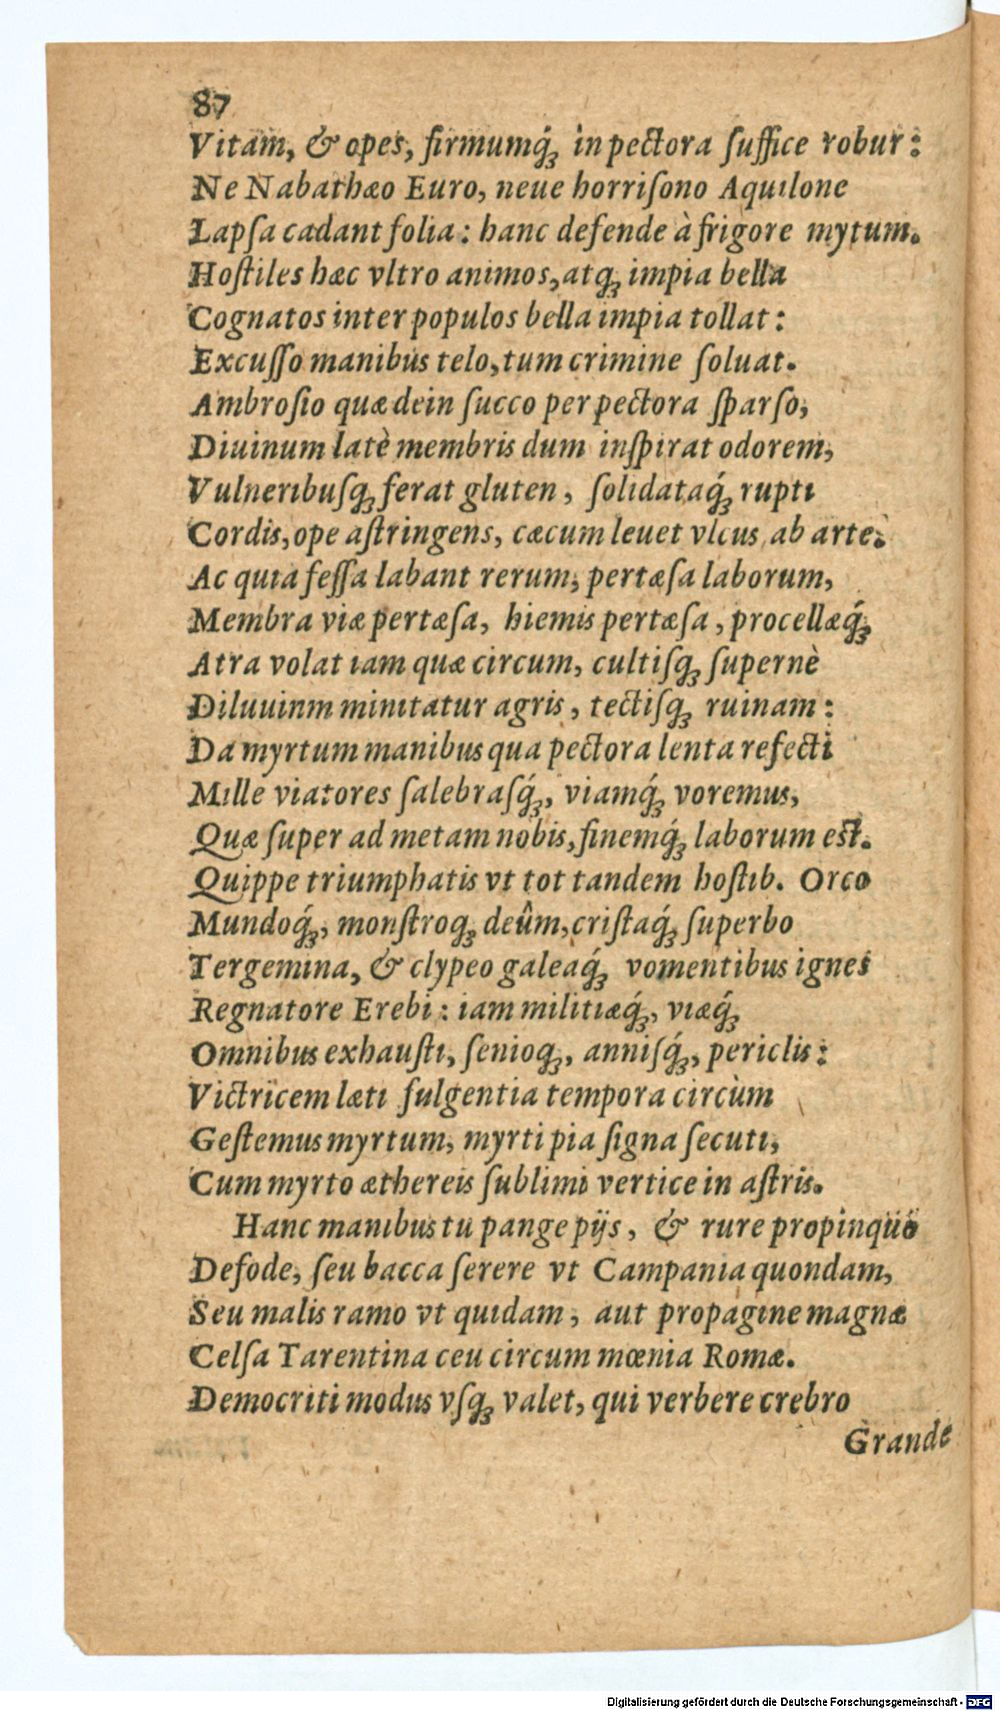 87
Vitam, & opes, firmumq́ꝫ in pectora ſuffice robur:
Ne Nabathæo Euro, neue horriſono Aquilone
Lapſa cadant folia: hanc defende à frigore mytum.
Hoſtiles hæc vltro animos, atqꝫ impia bella
Cognatos inter populos bella impia tollat:
Excuſſo manibus telo, tum crimine ſoluat.
Ambroſio quæ dein ſucco per pectora ſparſo,
Diuinum latè membris dum inſpirat odorem,
Vulneribuſqꝫ ferat gluten, ſolidataq́ꝫ rupti
Cordis, ope aſtringens, cæcum leuet vlcus ab arte:
Ac quia feſſa labant rerum, pertæſa laborum,
Membra viæ pertæſa, hiemis pertæſa, procellæq́ꝫ
Atra volat iam quæ circum, cultiſqꝫ supernè
Diluuinm minitatur agris, tectiſqꝫ ruinam:
Da myrtum manibus qua pectora lenta refecti
Mille viatores ſalebraſq́ꝫ, viamq́ꝫ voremus,
Quæ ſuper ad metam nobis, finemq́ꝫ laborum eſt.
Quippe triumphatis vt tot tandem hoſtib. Orco
Mundoq́ꝫ, monſtroqꝫ deûm, criſtaq́ꝫ ſuperbo
Tergemina, & clypeo galeaq́ꝫ vomentibus ignes
Regnatore Erebi: iam militiæq́ꝫ, viæq́ꝫ
Omnibus exhauſti, ſenioqꝫ, anniſq́ꝫ, periclis:
Victricem læti fulgentia tempora circùm
Geſtemus myrtum, myrti pia ſigna ſecuti,
Cum myrto æthereis ſublimi vertice in aſtris.
Hanc manibus tu pange pijs, & rure propinquo
Defode, ſeu bacca ſerere vt Campania quondam,
Seu malis ramo vt quidam, aut propagine magnæ
Celſa Tarentina ceu circum mœnia Romæ.
Democriti modus vſqꝫ valet, qui verbere crebro
Grande
Digitalisierung gefördert durch die Deutsche Forschungsgemeinschaft - DFG